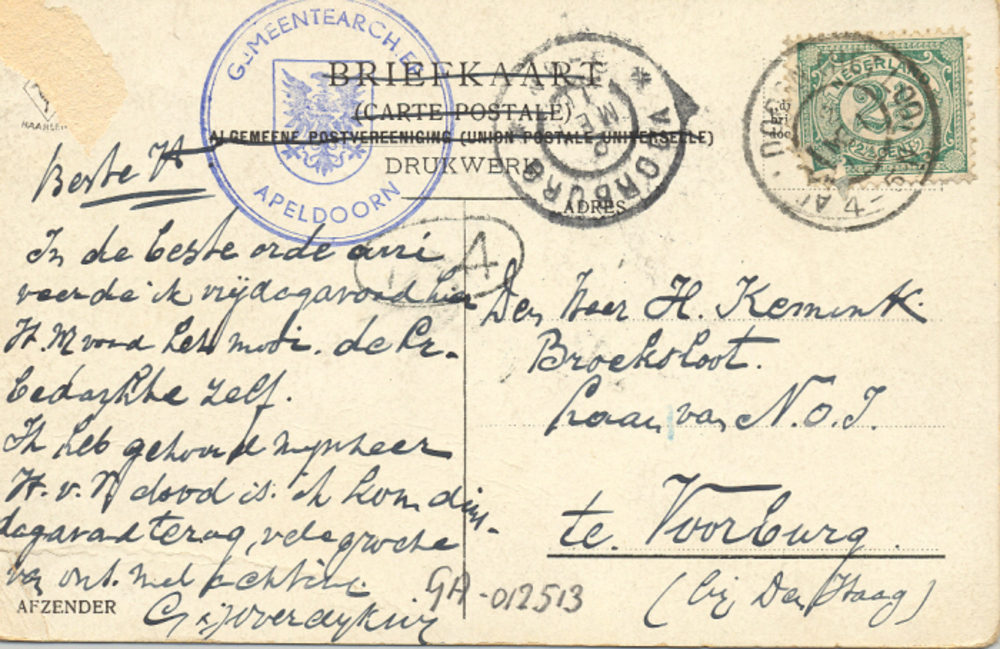 GEMEENTEARCHIEF
APELDOORN
BRIEFKAART
(CARTE POSTALE)
ALGEMEENE POSTVEREENIGING (UNION POSTALE UNIVERSELLE)
DRUKWERK
ADRES
VOORBURG
NEDERLAND
2½ CENT 2½
Beste H
In de beste orde arri
veerde ik vrijdagavond hier
H. M vond het mooi. de
bedankte zelf.
Ik heb gehoord mynheer
H. v. dood is. ik kom dins-
dagavond terug, vele groete
van ons. met achting
AFZENDER
GA-012513
4
Den Heer H. Kemink.
Broeksloot.
Laan van N. O. I.
te Voorburg.
(bij Den Haag)